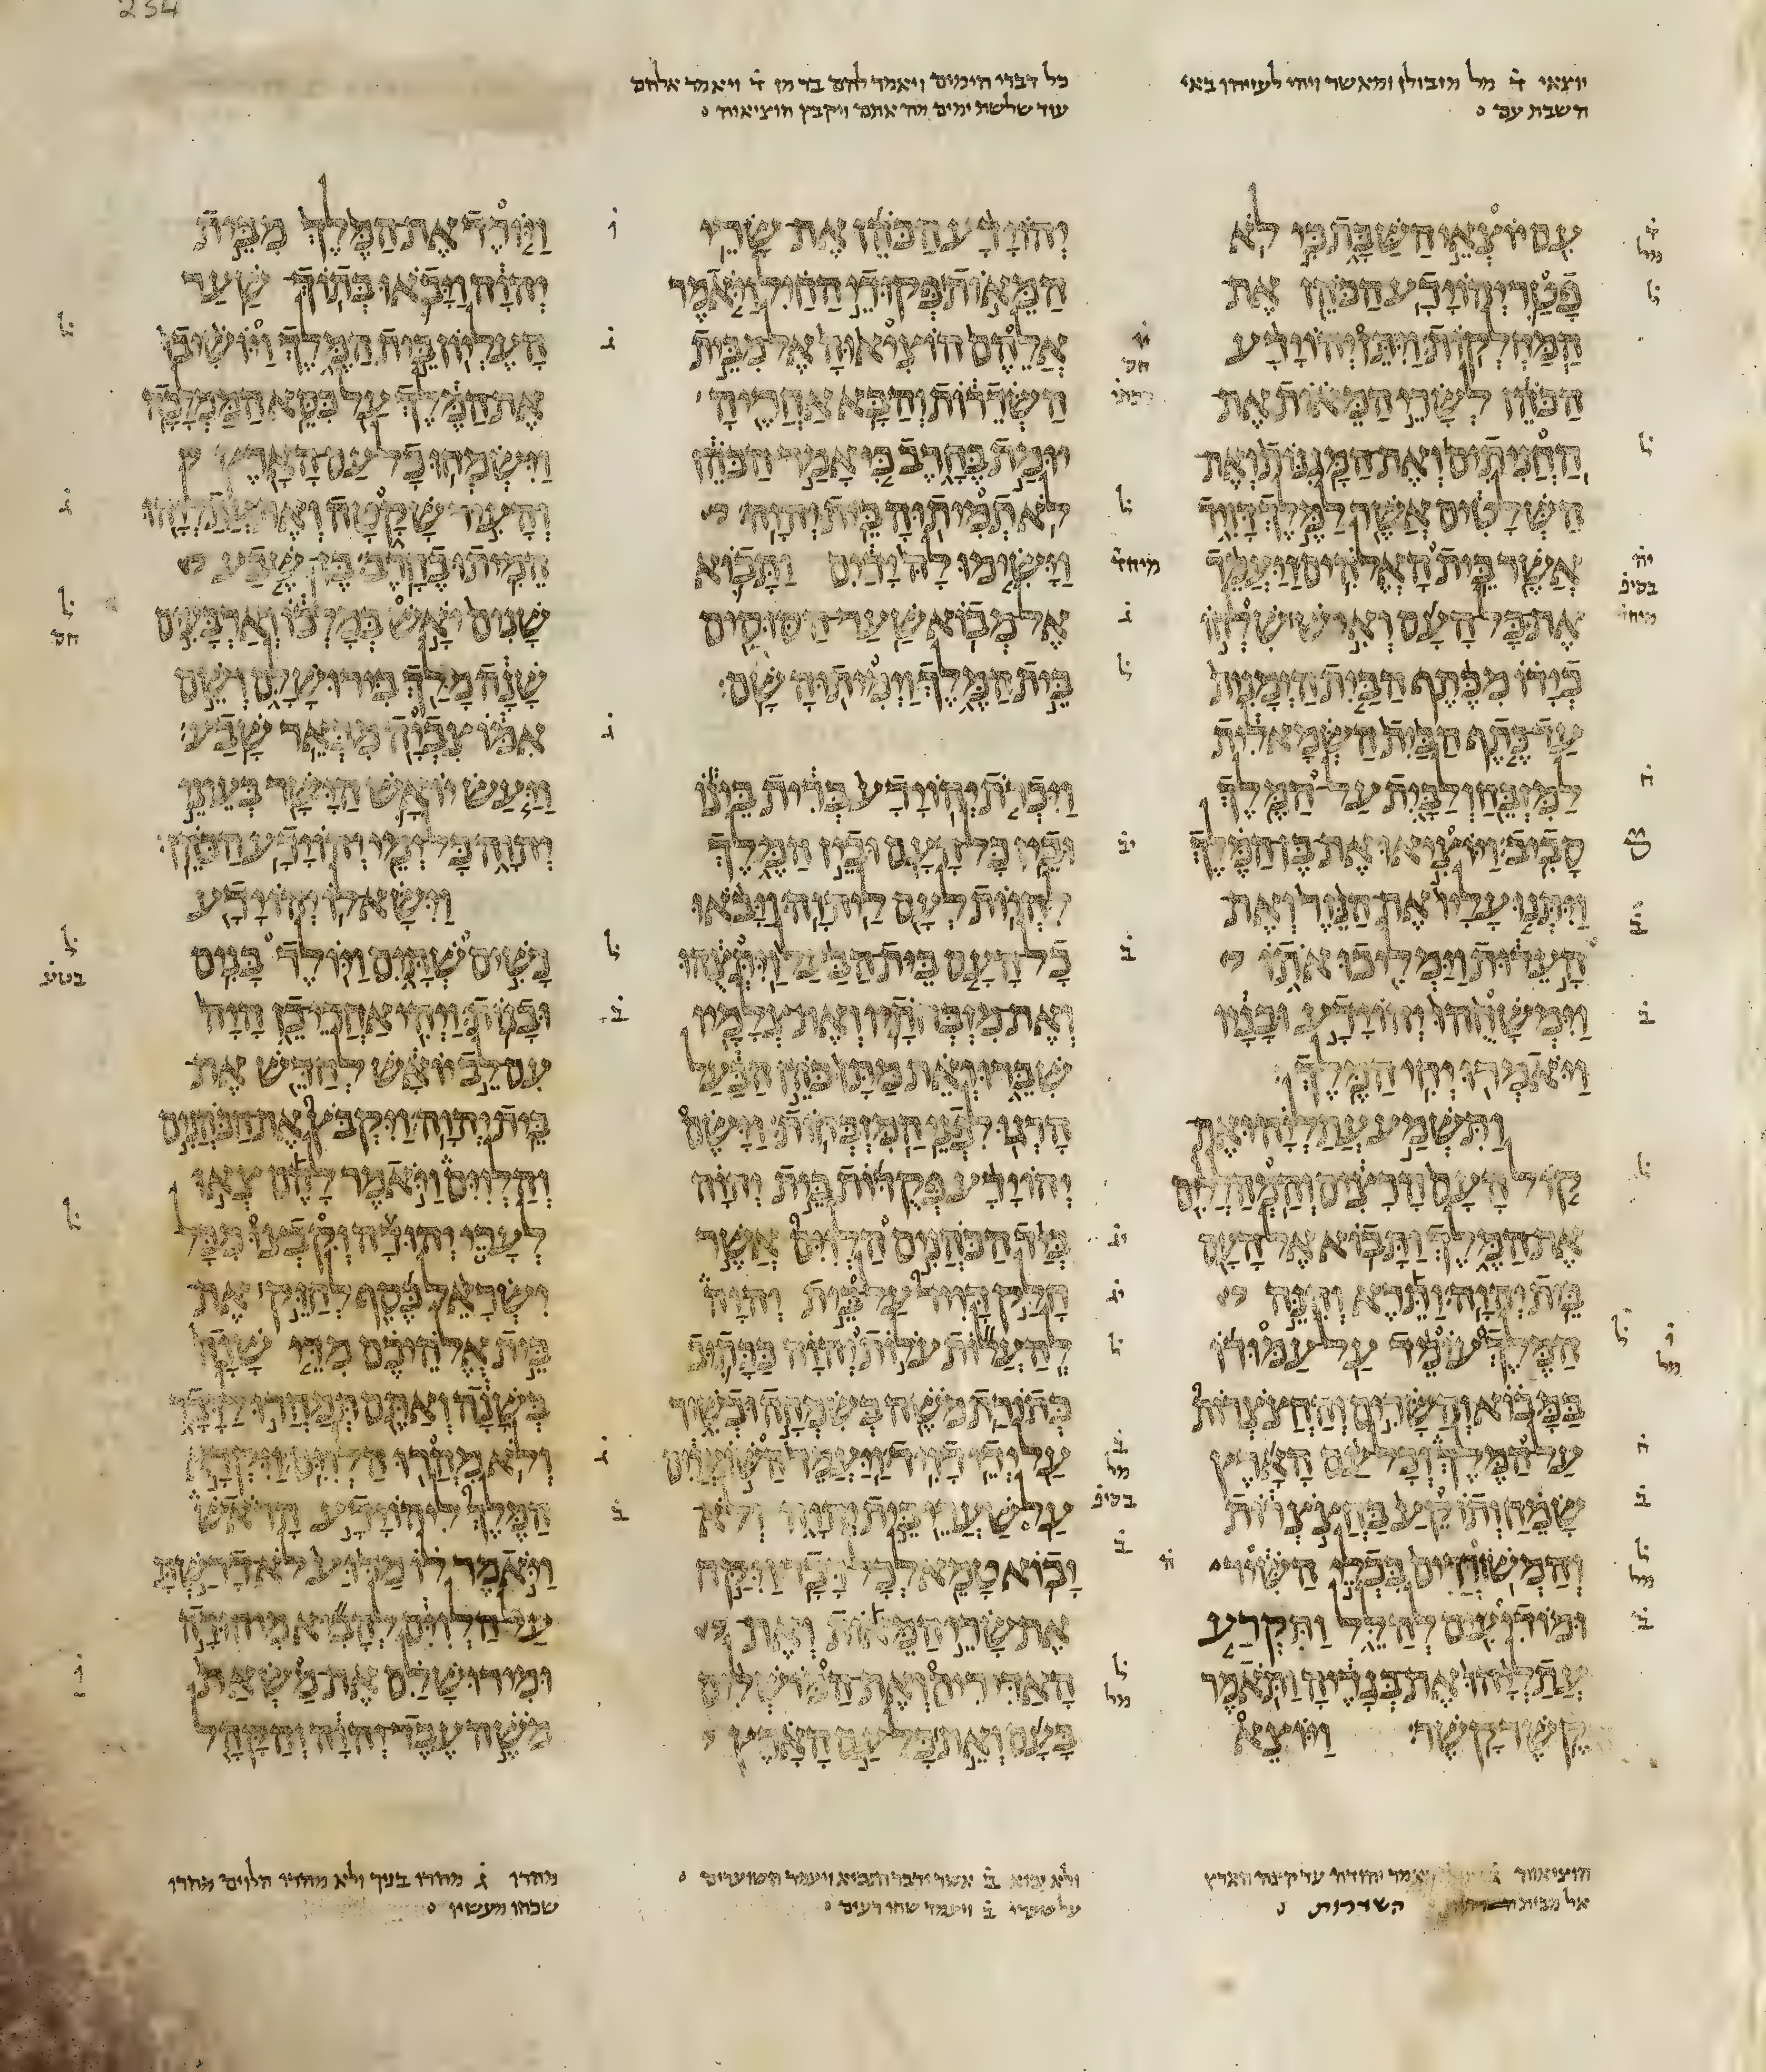 יוצאי ד̇ מל מזבולן ומאשר ויהי לעזיהו באי
השבת עם
כל דברי הימים ויאמר להם בר מן ד̇ ויאמר אלהם
עוד שלשת ימים מה אתם ויקבץ הוציאוה
עם יוצאי השבת כי לא
פטר יהוידע הכהן את
המחלקות ויתן יהוידע
הכהן לשרי המאות את
החניתים ואת המגנות ואת
השלטים אשר למלך דויד
אשר בית האלהים ויעמד
את כל העם ואיש שלחו
בידו מכתף הבית הימנית
עד כתף הבית השמאלית
למזבח ולבית על המלך
סביב ויוציאו את בן המלך
ויתנו עליו את הנזר ואת
העדות וימליכו אתו
וימשחהו יהוידע ובניו
ויאמרו יחי המלך
ותשמע עתליהו את
קול העם הרצים והמהללים
את המלך ותבוא אל העם
בית יהוה ותרא והנה
המלך עומד על עמודו
במבוא והשרים והחצצרות
על המלך וכל עם הארץ
שמח ותוקע בחצצרות
והמשוררים בכלי השיר
ומודיעים להלל ותקרע
עתליהו את בגדיה ותאמר
קשר קשר ויוצא
יהוידע הכהן את שרי
המאות פקודי החיל ויאמר
אלהם הוציאוה אל מבית
השדרות והבא אחריה
יומת בחרב כי אמר הכהן
לא תמיתוה בית יהוה
וישימו לה ידים ותבוא
אל מבוא שער הסוסים
בית המלך וימיתוה שם
ויכרת יהוידע ברית בינו
ובין כל העם ובין המלך
להיות לעם ליהוה ויבאו
כל העם בית הבעל ויתצהו
ואת מזבחתיו ואת צלמיו
שברו ואת מתן כהן הבעל
הרגו לפני המזבחות וישם
יהוידע פקדות בית יהוה
ביד הכהנים הלוים אשר
חלק דויד על בית יהוה
להעלות עלות יהוה ככתוב
בתורת משה בשמחה ובשיר
על ידי דויד ויעמד השוערים
על שערי בית יהוה ולא
יבוא טמא לכל דבר ויקח
את שרי המאות ואת
האדירים ואת המושלים
בעם ואת כל עם הארץ
ויורד את המלך מבית
יהוה ויבאו בתוך שער
העליון בית המלך ויושיבו
את המלך על כסא הממלכה
וישמחו כל עם הארץ
והעיר שקטה ואת עתליהו
המיתו בחרב בן שבע
שנים יאש במלכו וארבעים
שנה מלך בירושלם ושם
אמו צביה מבאר שבע
ויעש יואש הישר בעיני
יהוה כל ימי יהוידע הכהן
וישא לו יהוידע
נשים שתים ויולד בנים
ובנות ויהי אחרי כן היה
עם לב יואש לחדש את
בית יהוה ויקבץ את הכהנים
והלוים ויאמר להם צאו
לערי יהודה וקבצו מכל
ישראל כסף לחזק את
בית אלהיכם מדי שנה
בשנה ואתם תמהרו לדבר
ולא מהרו הלוים ויקרא
המלך ליהוידע הראש
ויאמר לו מדוע לא דרשת
על הלוים להביא מיהודה
ומירושלם את משאת
משה עבד יהוה והקהל
אל מבית השדרות
ולא יבוא ב̇ אשר ידבר הנביא ויעמד השוערים
על שערי ב̇ ויעמד
מהרו ג̇ מהרו בניך ולא מהרו הלוים מהרו
שכחו מעשיו